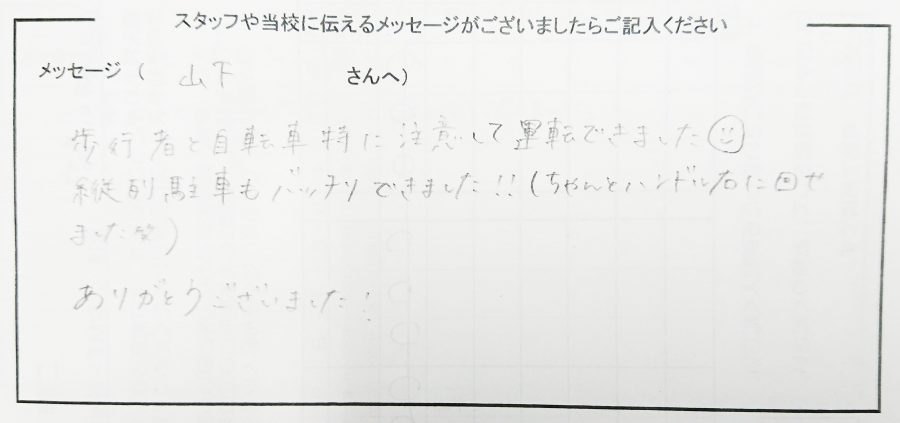 スタッフや当校に伝えるメッセージがございましたらご記入ください
メッセージ ( 山下 さんへ)
歩行者と自転車特に注意して運転できました☺
縦列駐車もバッチリできました!!(ちゃんとハンドル右に回せ
ました笑)
ありがとうございました!